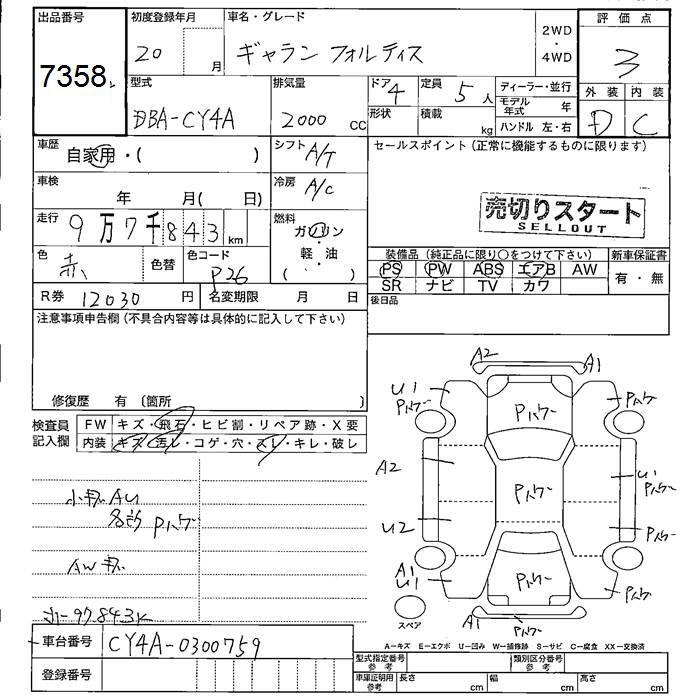 出品番号
7358
初度登録年月
20 月
車名・グレード
ギャラン フォルティス
2WD
・
4WD
評価点
3
外装 内装
D C
型式
DBA-CY4A
排気量
2000 cc
ドア 4
形状
定員 5人
積載 kg
ディーラー・並行
モデル年式 年
ハンドル 左・右
車歴
自家用・( )
シフト A/T
車検
年 月( 日)
冷房 A/C
走行
9万7千843 km
燃料
ガソリン
・
軽・油
( )
色 赤 色替
色コード P26
R券 12030 円
名変期限 月 日
セールスポイント(正常に機能するものに限ります)
売切りスタート
SELLOUT
装備品(純正品に限り○をつけて下さい) 新車保証書
PS PW ABS エアB AW
有・無
SR ナビ TV カワ
後日品
注意事項申告欄(不具合内容等は具体的に記入して下さい)
修復歴 有(箇所 )
検査員記入欄
FW キズ・飛石・ヒビ割・リペア跡・X要
内装 キズ・汚レ・コゲ・穴・スレ・キレ・破レ
各部 Pハゲー
AW
97843K
車台番号 CY4A-0300759
登録番号
A2
A1
U1
Pハゲー
Pハゲー
Pハゲー
A2
Pハゲー
U1
Pハゲー
U2
Pハゲー
A1
U1
Pハゲー
Pハゲー
スペア
A1
Pハゲー
A-キズ E-エクボ U-凹み W-補修跡 S-サビ C-腐食 XX-交換済
型式指定番号 参考
類別区分番号 参考
車庫証明用 参考
長さ cm
幅 cm
高さ cm